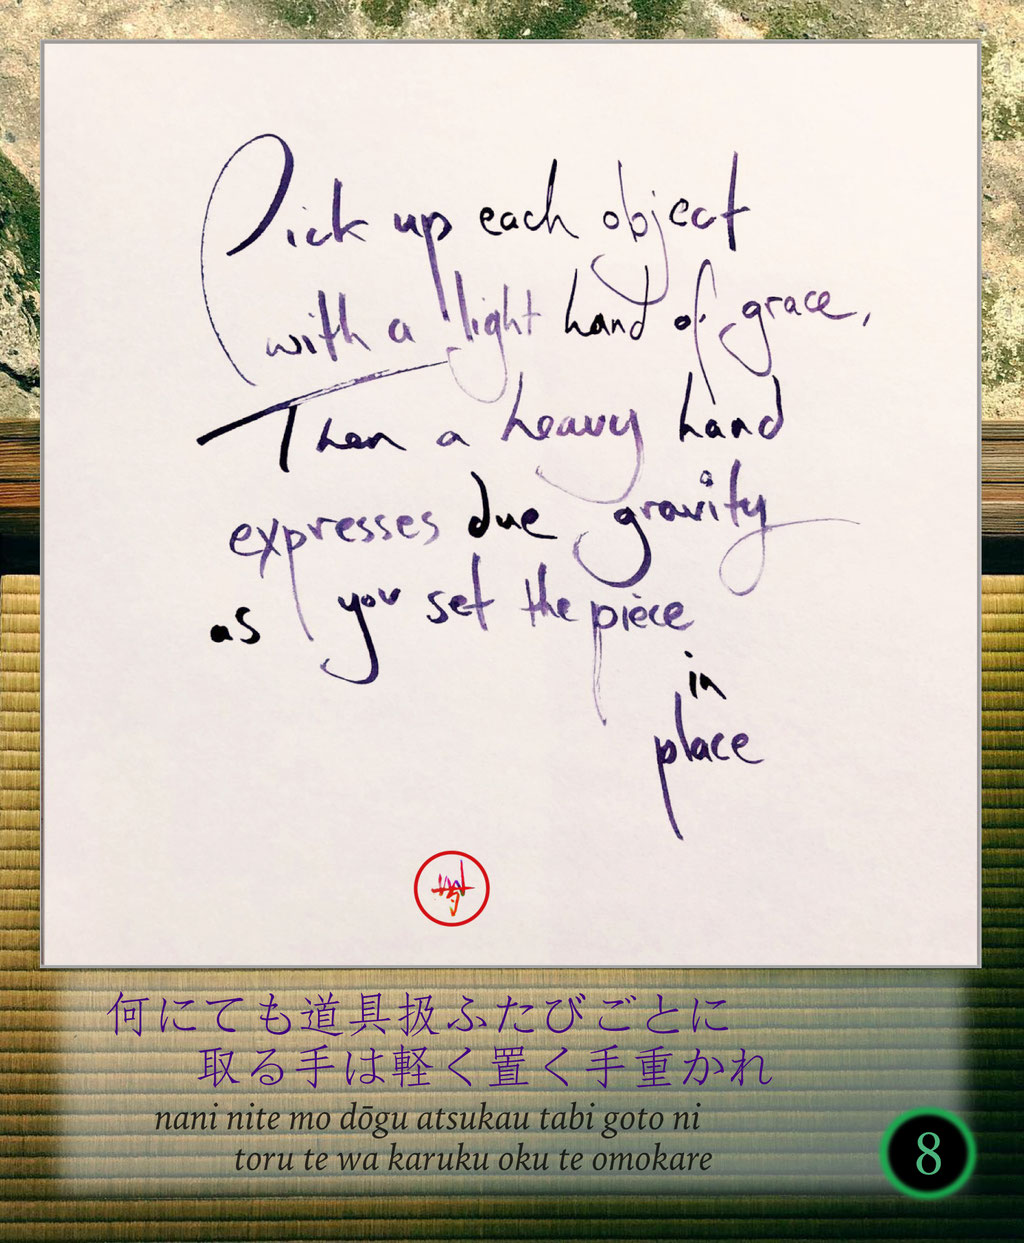 Pick up each object
with a light hand of grace,
Then a heavy hand
expresses due gravity
as you set the piece
in
place
何にても道具扱ふたびごとに
取る手は軽く置く手重かれ
nani nite mo dōgu atsukau tabi goto ni
toru te wa karuku oku te omokare
8